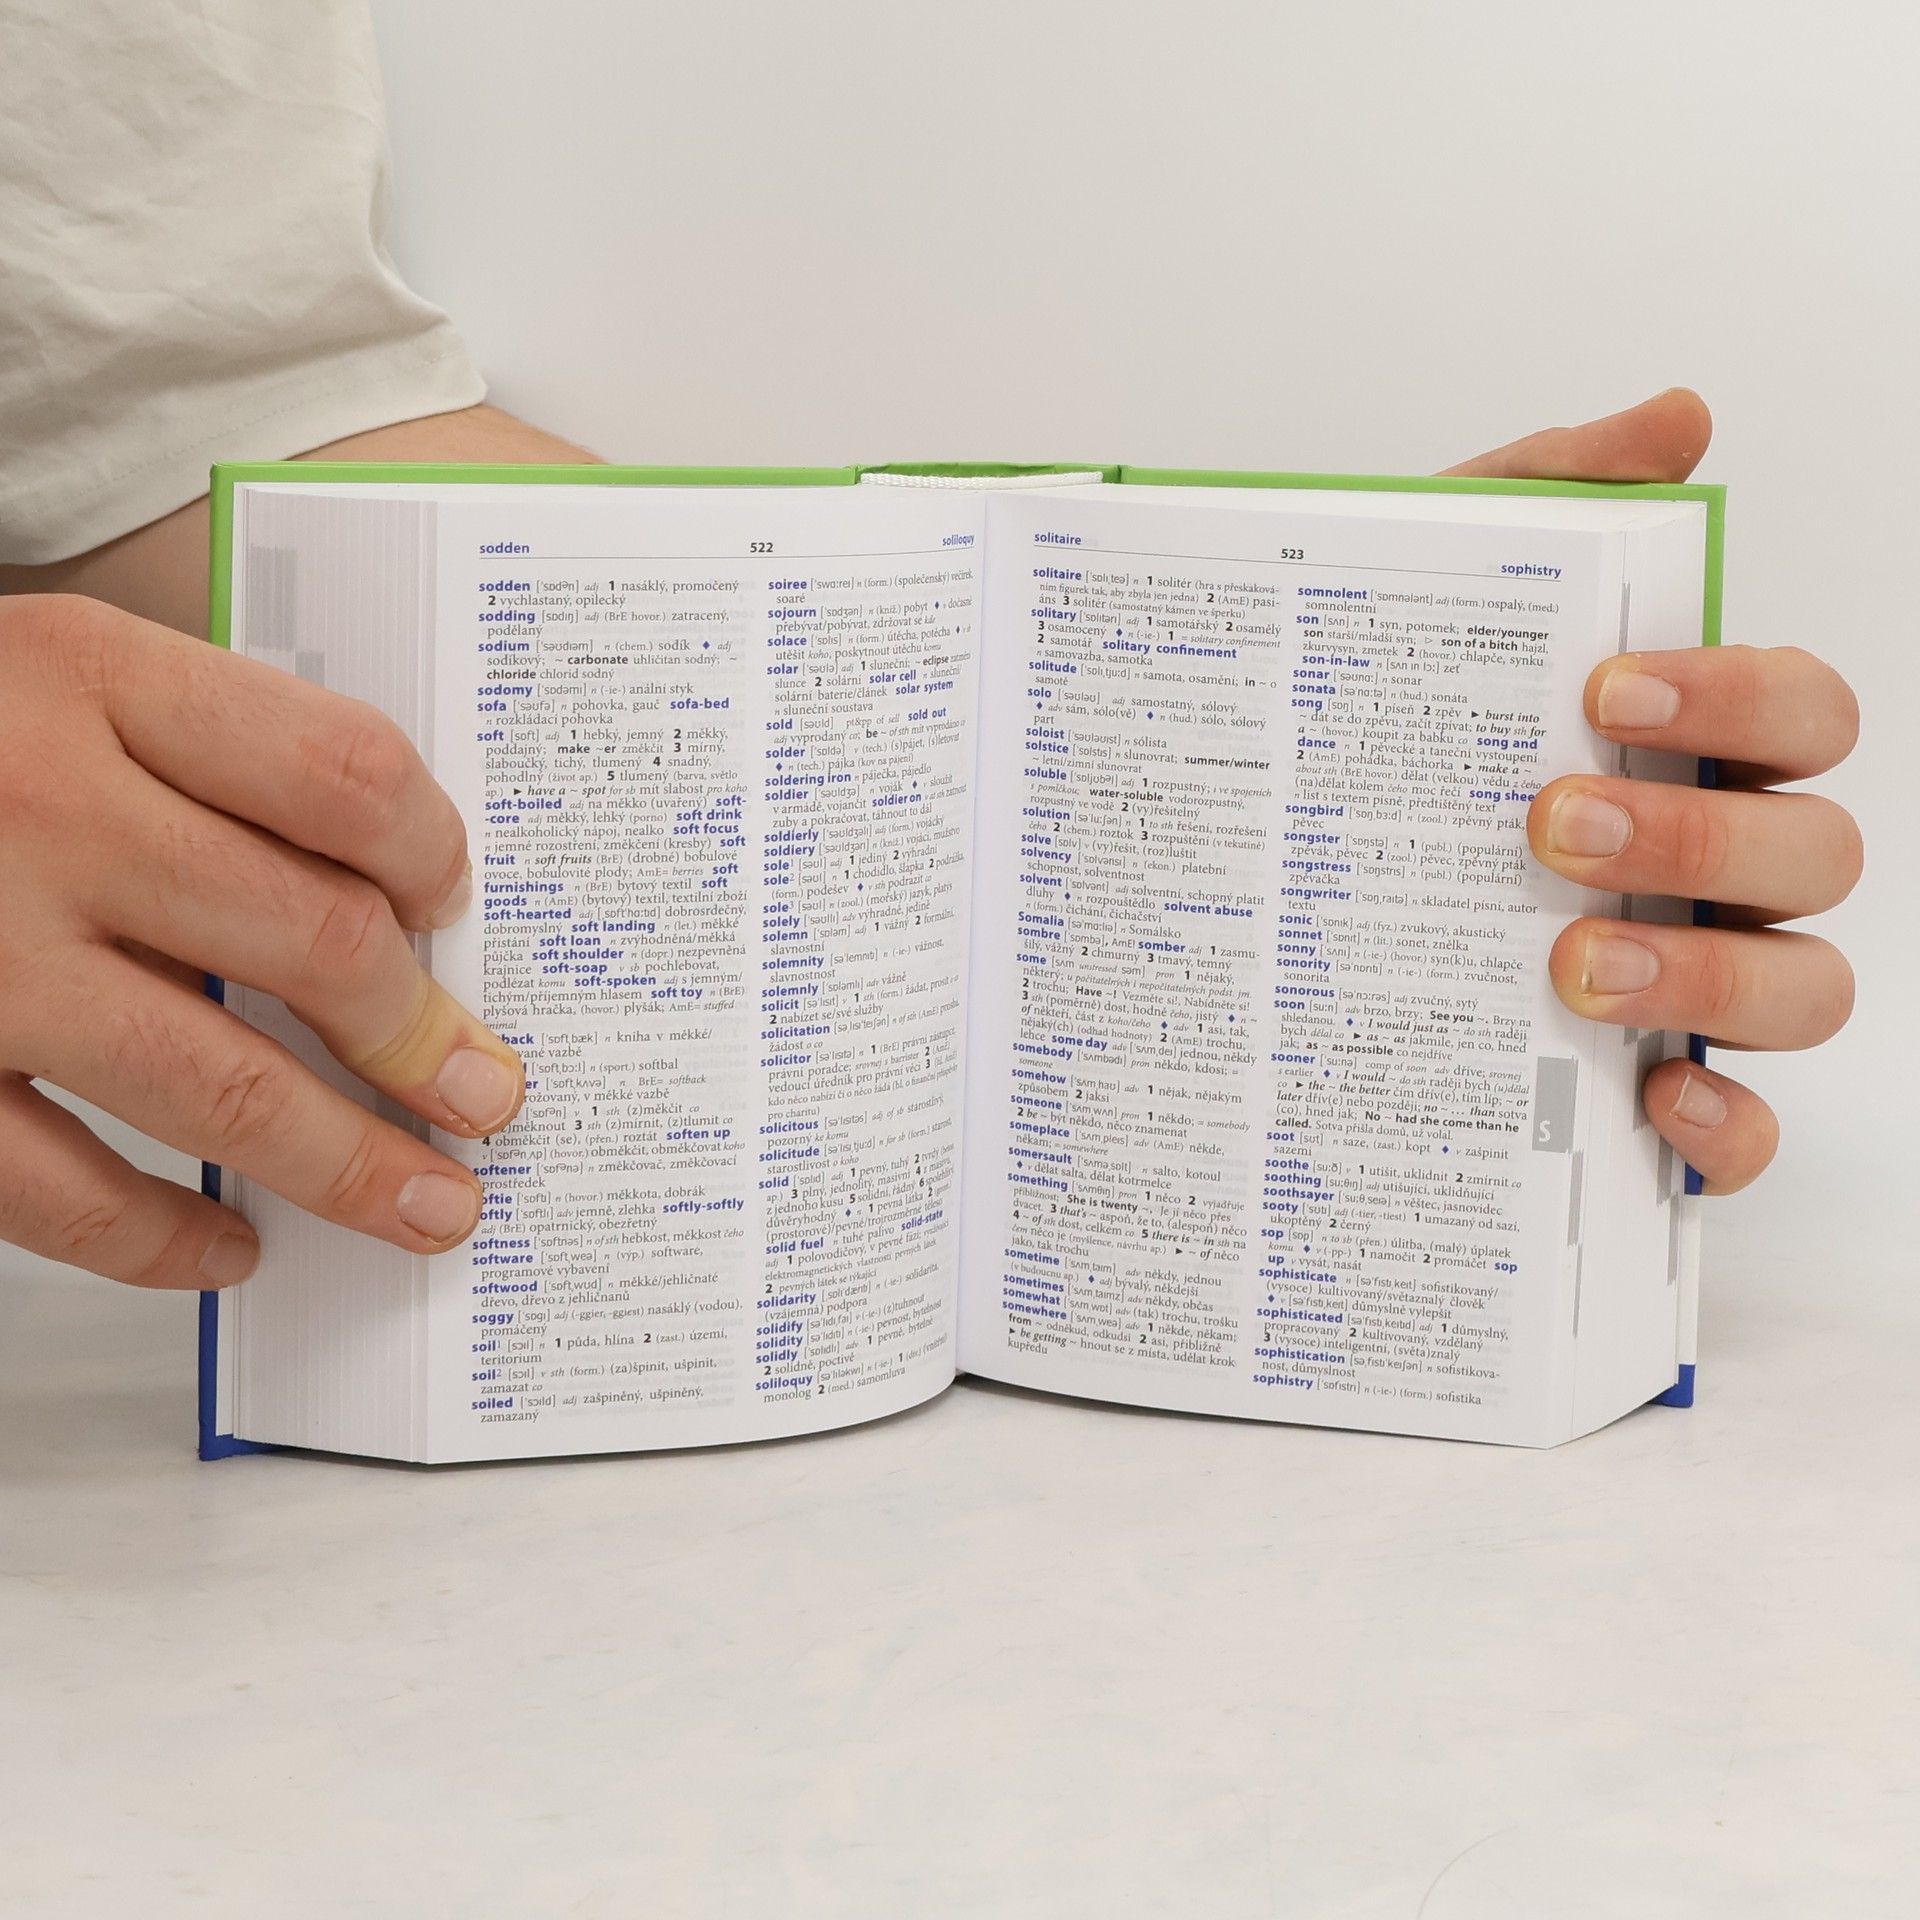 sodden 522 soliloquy
sodden ['sɒdən] adj 1 nasáklý, promočený
2 vychlastaný, opilecký
sodding [sɒdɪŋ] adj (BrE hovor.) zatracený,
podělaný
sodium ['səʊdiəm] n (chem.) sodík ♦ adj
sodíkový; ~ carbonate uhličitan sodný; ~
chloride chlorid sodný
sodomy ['sɒdəmi] n (-ie-) anální styk
sofa ['səʊfə] n pohovka, gauč sofa-bed
n rozkládací pohovka
soft [sɒft] adj 1 hebký, jemný 2 měkký,
poddajný; make ~er změkčit 3 mírný,
slaboučký, tichý, tlumený 4 snadný,
pohodlný (život ap.) 5 tlumený (barva, světlo
ap.) ► have a ~ spot for sb mít slabost pro koho
soft-boiled adj na měkko (uvařený) soft-
-core adj měkký, lehký (porno) soft drink
n nealkoholický nápoj, nealko soft focus
n jemné rozostření, změkčení (kresby) soft
fruit n soft fruits (BrE) (drobné) bobulové
ovoce, bobulovité plody; AmE= berries soft
furnishings n (BrE) bytový textil soft
goods n (AmE) (bytový) textil, textilní zboží
soft-hearted adj [ˌsɒft'hɑːtɪd] dobrosrdečný,
dobromyslný soft landing n (let.) měkké
přistání soft loan n zvýhodněná/měkká
půjčka soft shoulder n (dopr.) nezpevněná
krajnice soft-soap v sb pochlebovat,
podlézat komu soft-spoken adj s jemným/
tichým/příjemným hlasem soft toy n (BrE)
plyšová hračka, (hovor.) plyšák; AmE= stuffed
animal
back ['sɒftˌbæk] n kniha v měkké/
vané vazbě
['sɒftˌbɔːl] n (sport.) softbal
er ['sɒftˌkʌvə] n BrE= softback
rožovaný, v měkké vazbě
['sɒfən] v 1 sth (z)měkčit co
(z)měknout 3 sth (z)mírnit, (z)tlumit co
4 obměkčit (se), (přen.) roztát soften up
v ['sɒfənˌʌp] (hovor.) obměkčit, obměkčovat koho
softener ['sɒfənə] n změkčovač, změkčovací
prostředek
oftie ['sɒfti] n (hovor.) měkkota, dobrák
oftly ['sɒftli] adv jemně, zlehka softly-softly
adj (BrE) opatrnický, obezřetný
softness ['sɒftnəs] n of sth hebkost, měkkost čeho
software ['sɒftˌweə] n (výp.) software,
programové vybavení
softwood ['sɒftˌwʊd] n měkké/jehličnaté
dřevo, dřevo z jehličnanů
soggy ['sɒgi] adj (-ggier, -ggiest) nasáklý (vodou),
promáčený
soil¹ [sɔɪl] n 1 půda, hlína 2 (zast.) území,
teritorium
soil² [sɔɪl] v sth (form.) (za)špinit, ušpinit,
zamazat co
soiled ['sɔɪld] adj zašpiněný, ušpiněný,
zamazaný
soiree ['swɑːreɪ] n (form.) (společenský) večírek,
soaré
sojourn ['sɒdʒən] n (kniž.) pobyt ♦ v dočasně
přebývat/pobývat, zdržovat se kde
solace ['sɒlɪs] n (form.) útěcha, potěcha ♦ v it
utěšit koho, poskytnout útěchu komu
solar ['səʊlə] adj 1 sluneční; ~ eclipse zatmění
slunce 2 solární solar cell n sluneční/
solární baterie/článek solar system
n sluneční soustava
sold [səʊld] pt&pp of sell sold out
adj vyprodaný co; be ~ of sth mít vyprodáno co
solder ['sɒldə] v (tech.) (s)pájet, (s)letovat
♦ n (tech.) pájka (kov na pájení)
soldering iron n páječka, pájedlo
soldier ['səʊldʒə] n voják ♦ v sloužit
v armádě, vojančit soldier on v at sth zatnout
zuby a pokračovat, táhnout to dál
soldierly ['səʊldʒəli] adj (form.) vojácky
soldiery ['səʊldʒəri] n (kniž.) vojáci, mužstvo
sole¹ [səʊl] adj 1 jediný 2 výhradní
sole² [səʊl] n 1 chodidlo, šlapka 2 podrážka,
(form.) podešev ♦ v sth podrazit co
sole³ [səʊl] n (zool.) (mořský) jazyk, platýs
solely ['səʊlli] adv výhradně, jedině
solemn ['sɒləm] adj 1 vážný 2 formální,
slavnostní
solemnity [sə'lemnɪti] n (-ie-) vážnost,
slavnostnost
solemnly ['sɒləmli] adv vážně
solicit [sə'lɪsɪt] v 1 sth (form.) žádat, prosit o co
2 nabízet se/své služby
solicitation [səˌlɪsɪ'teɪʃən] n of sth (AmE) prosba,
žádost o co
solicitor [sə'lɪsɪtə] n 1 (BrE) právní zástupce,
právní poradce; srovnej s barrister 2 (AmE)
vedoucí úředník pro právní věci 3 (hl. AmE)
kdo něco nabízí či o něco žádá (hl. o finanční příspěvky
pro charitu)
solicitous [sə'lɪsɪtəs] adj of sb starostlivý,
pozorný ke komu
solicitude [sə'lɪsɪˌtjuːd] n for sb (form.) starost,
starostlivost o koho
solid ['sɒlɪd] adj 1 pevný, tuhý 2 tvrdý (beton
ap.) 3 plný, jednolitý, masivní 4 z masivu,
z jednoho kusu 5 solidní, řádný 6 spolehlivý,
důvěryhodný ♦ n 1 pevná látka 2 (geom.)
(prostorové)/pevné/trojrozměrné těleso
solid fuel n tuhé palivo solid-state
adj 1 polovodičový, v pevné fázi; využívající
elektromagnetických vlastností pevných látek
2 pevných látek se týkající
solidarity [ˌsɒlɪ'dærɪti] n (-ie-) solidarita,
(vzájemná) podpora
solidify [sə'lɪdɪˌfaɪ] v (-ie-) (z)tuhnout
solidity [sə'lɪdɪti] n (-ie-) pevnost, bytelnost
solidly ['sɒlɪdli] adv 1 pevně, bytelně
2 solidně, poctivě
soliloquy [sə'lɪləkwi] n (-ie-) 1 (div.) (vnitřní)
monolog 2 (med.) samomluva
solitaire 523 sophistry
solitaire [ˌsɒlɪˌteə] n 1 solitér (hra s přeskaková-
ním figurek tak, aby zbyla jen jedna) 2 (AmE) pasi-
áns 3 solitér (samostatný kámen ve šperku)
solitary ['sɒlɪtəri] adj 1 samotářský 2 osamělý
3 osamocený ♦ n (-ie-) 1 = solitary confinement
2 samotář solitary confinement
n samovazba, samotka
solitude ['sɒlɪˌtjuːd] n samota, osamění; in ~ o
samotě
solo ['səʊləʊ] adj samostatný, sólový
♦ adv sám, sólo(vě) ♦ n (hud.) sólo, sólový
part
soloist ['səʊləʊɪst] n sólista
solstice ['sɒlstɪs] n slunovrat; summer/winter
~ letní/zimní slunovrat
soluble ['sɒljʊbəl] adj 1 rozpustný; i ve spojeních
s pomlčkou; water-soluble vodorozpustný,
rozpustný ve vodě 2 (vy)řešitelný
solution [sə'luːʃən] n 1 to sth řešení, rozřešení
čeho 2 (chem.) roztok 3 rozpuštění (v tekutině)
solve [sɒlv] v (vy)řešit, (roz)luštit
solvency ['sɒlvənsi] n (ekon.) platební
schopnost, solventnost
solvent ['sɒlvənt] adj solventní, schopný platit
dluhy ♦ n rozpouštědlo solvent abuse
n (form.) čichání, čichačství
Somalia [sə'mɑːliə] n Somálsko
sombre ['sɒmbə], AmE! somber adj 1 zasmu-
šilý, vážný 2 chmurný 3 tmavý, temný
some [sʌm unstressed səm] pron 1 nějaký,
některý; u počitatelných i nepočitatelných podst. jm.
2 trochu; Have ~! Vezměte si!, Nabídněte si!
3 sth (poměrně) dost, hodně čeho, jistý ♦ n ~
of někteří, část z koho/čeho ♦ adv 1 asi, tak,
nějaký(ch) (odhad hodnoty) 2 (AmE) trochu,
lehce some day adv ['sʌmˌdeɪ] jednou, někdy
somebody ['sʌmbədi] pron někdo, kdosi; =
someone
somehow ['sʌmˌhaʊ] adv 1 nějak, nějakým
způsobem 2 jaksi
someone ['sʌmˌwʌn] pron 1 někdo; = somebody
2 be ~ být někdo, něco znamenat
someplace ['sʌmˌpleɪs] adv (AmE) někde,
někam; = somewhere
somersault ['sʌməˌsɒlt] n salto, kotoul
♦ v dělat salta, dělat kotrmelce
something ['sʌmθɪŋ] pron 1 něco 2 vyjadřuje
přibližnost; She is twenty ~. Je jí něco přes
dvacet. 3 that's ~ aspoň, že to, (alespoň) něco
4 ~ of sth dost, celkem co 5 there is ~ in sth na
čem něco je (myšlence, návrhu ap.) ► ~ of něco
jako, tak trochu
sometime ['sʌmˌtaɪm] adv někdy, jednou
(v budoucnu ap.) ♦ adj bývalý, někdejší
sometimes ['sʌmˌtaɪmz] adv někdy, občas
somewhat ['sʌmˌwɒt] adv (tak) trochu, trošku
somewhere ['sʌmˌweə] adv 1 někde, někam;
from ~ odněkud, odkudsi 2 asi, přibližně
► be getting ~ hnout se z místa, udělat krok
kupředu
somnolent ['sɒmnələnt] adj (form.) ospalý, (med.)
somnolentní
son [sʌn] n 1 syn, potomek; elder/younger
son starší/mladší syn; ▷ son of a bitch hajzl,
zkurvysyn, zmetek 2 (hovor.) chlapče, synku
son-in-law n [sʌn ɪn lɔː] zeť
sonar ['səʊnɑː] n sonar
sonata [sə'nɑːtə] n (hud.) sonáta
song [sɒŋ] n 1 píseň 2 zpěv ► burst into
~ dát se do zpěvu, začít zpívat; to buy sth for
a ~ (hovor.) koupit za babku co song and
dance n 1 pěvecké a taneční vystoupení
2 (AmE) pohádka, báchorka ► make a ~
about sth (BrE hovor.) dělat (velkou) vědu z čeho,
(na)dělat kolem čeho moc řečí song shee
n list s textem písně, předtištěný text
songbird ['sɒŋˌbɜːd] n (zool.) zpěvný pták,
pěvec
songster ['sɒŋstə] n 1 (publ.) (populární)
zpěvák, pěvec 2 (zool.) pěvec, zpěvný pták
songstress ['sɒŋstrɪs] n (publ.) (populární)
zpěvačka
songwriter ['sɒŋˌraɪtə] n skladatel písní, autor
textu
sonic ['sɒnɪk] adj (fyz.) zvukový, akustický
sonnet ['sɒnɪt] n (lit.) sonet, znělka
sonny ['sʌni] n (-ie-) (hovor.) syn(k)u, chlapče
sonority [sə'nɒrɪti] n (-ie-) (form.) zvučnost,
sonorita
sonorous [sə'nɔːrəs] adj zvučný, sytý
soon [suːn] adv brzo, brzy; See you ~. Brzy na
shledanou. ♦ v I would just as ~ do sth raději
bych dělal co ► as ~ as jakmile, jen co, hned
jak; as ~ as possible co nejdříve
sooner ['suːnə] comp of soon adv dříve; srovnej
s earlier ♦ v I would ~ do sth raději bych (u)dělal
co ► the ~ the better čím dřív(e), tím líp; ~ or
later dřív(e) nebo později; no ~ ... than sotva
(co), hned jak; No ~ had she come than he
called. Sotva přišla domů, už volal.
soot [sʊt] n saze, (zast.) kopt ♦ v zašpinit
sazemi
soothe [suːð] v 1 utišit, uklidnit 2 zmírnit co
soothing [suːðɪŋ] adj utišující, uklidňující
soothsayer ['suːθˌseɪə] n věštec, jasnovidec
sooty ['sʊti] adj (-tier, -tiest) 1 umazaný od sazí,
ukoptěný 2 černý
sop [sɒp] n to sb (přen.) úlitba, (malý) úplatek
komu ♦ v (-pp-) 1 namočit 2 promáčet sop
up v vysát, nasát
sophisticate n [sə'fɪstɪˌkeɪt] sofistikovaný/
(vysoce) kultivovaný/světaznalý člověk
♦ v [sə'fɪstɪˌkeɪt] důmyslně vylepšit
sophisticated [sə'fɪstɪˌkeɪtɪd] adj 1 důmyslný,
propracovaný 2 kultivovaný, vzdělaný
3 (vysoce) inteligentní, (světa)znalý
sophistication [səˌfɪstɪ'keɪʃən] n sofistikova-
nost, důmyslnost
sophistry ['sɒfɪstri] n (-ie-) (form.) sofistika
S